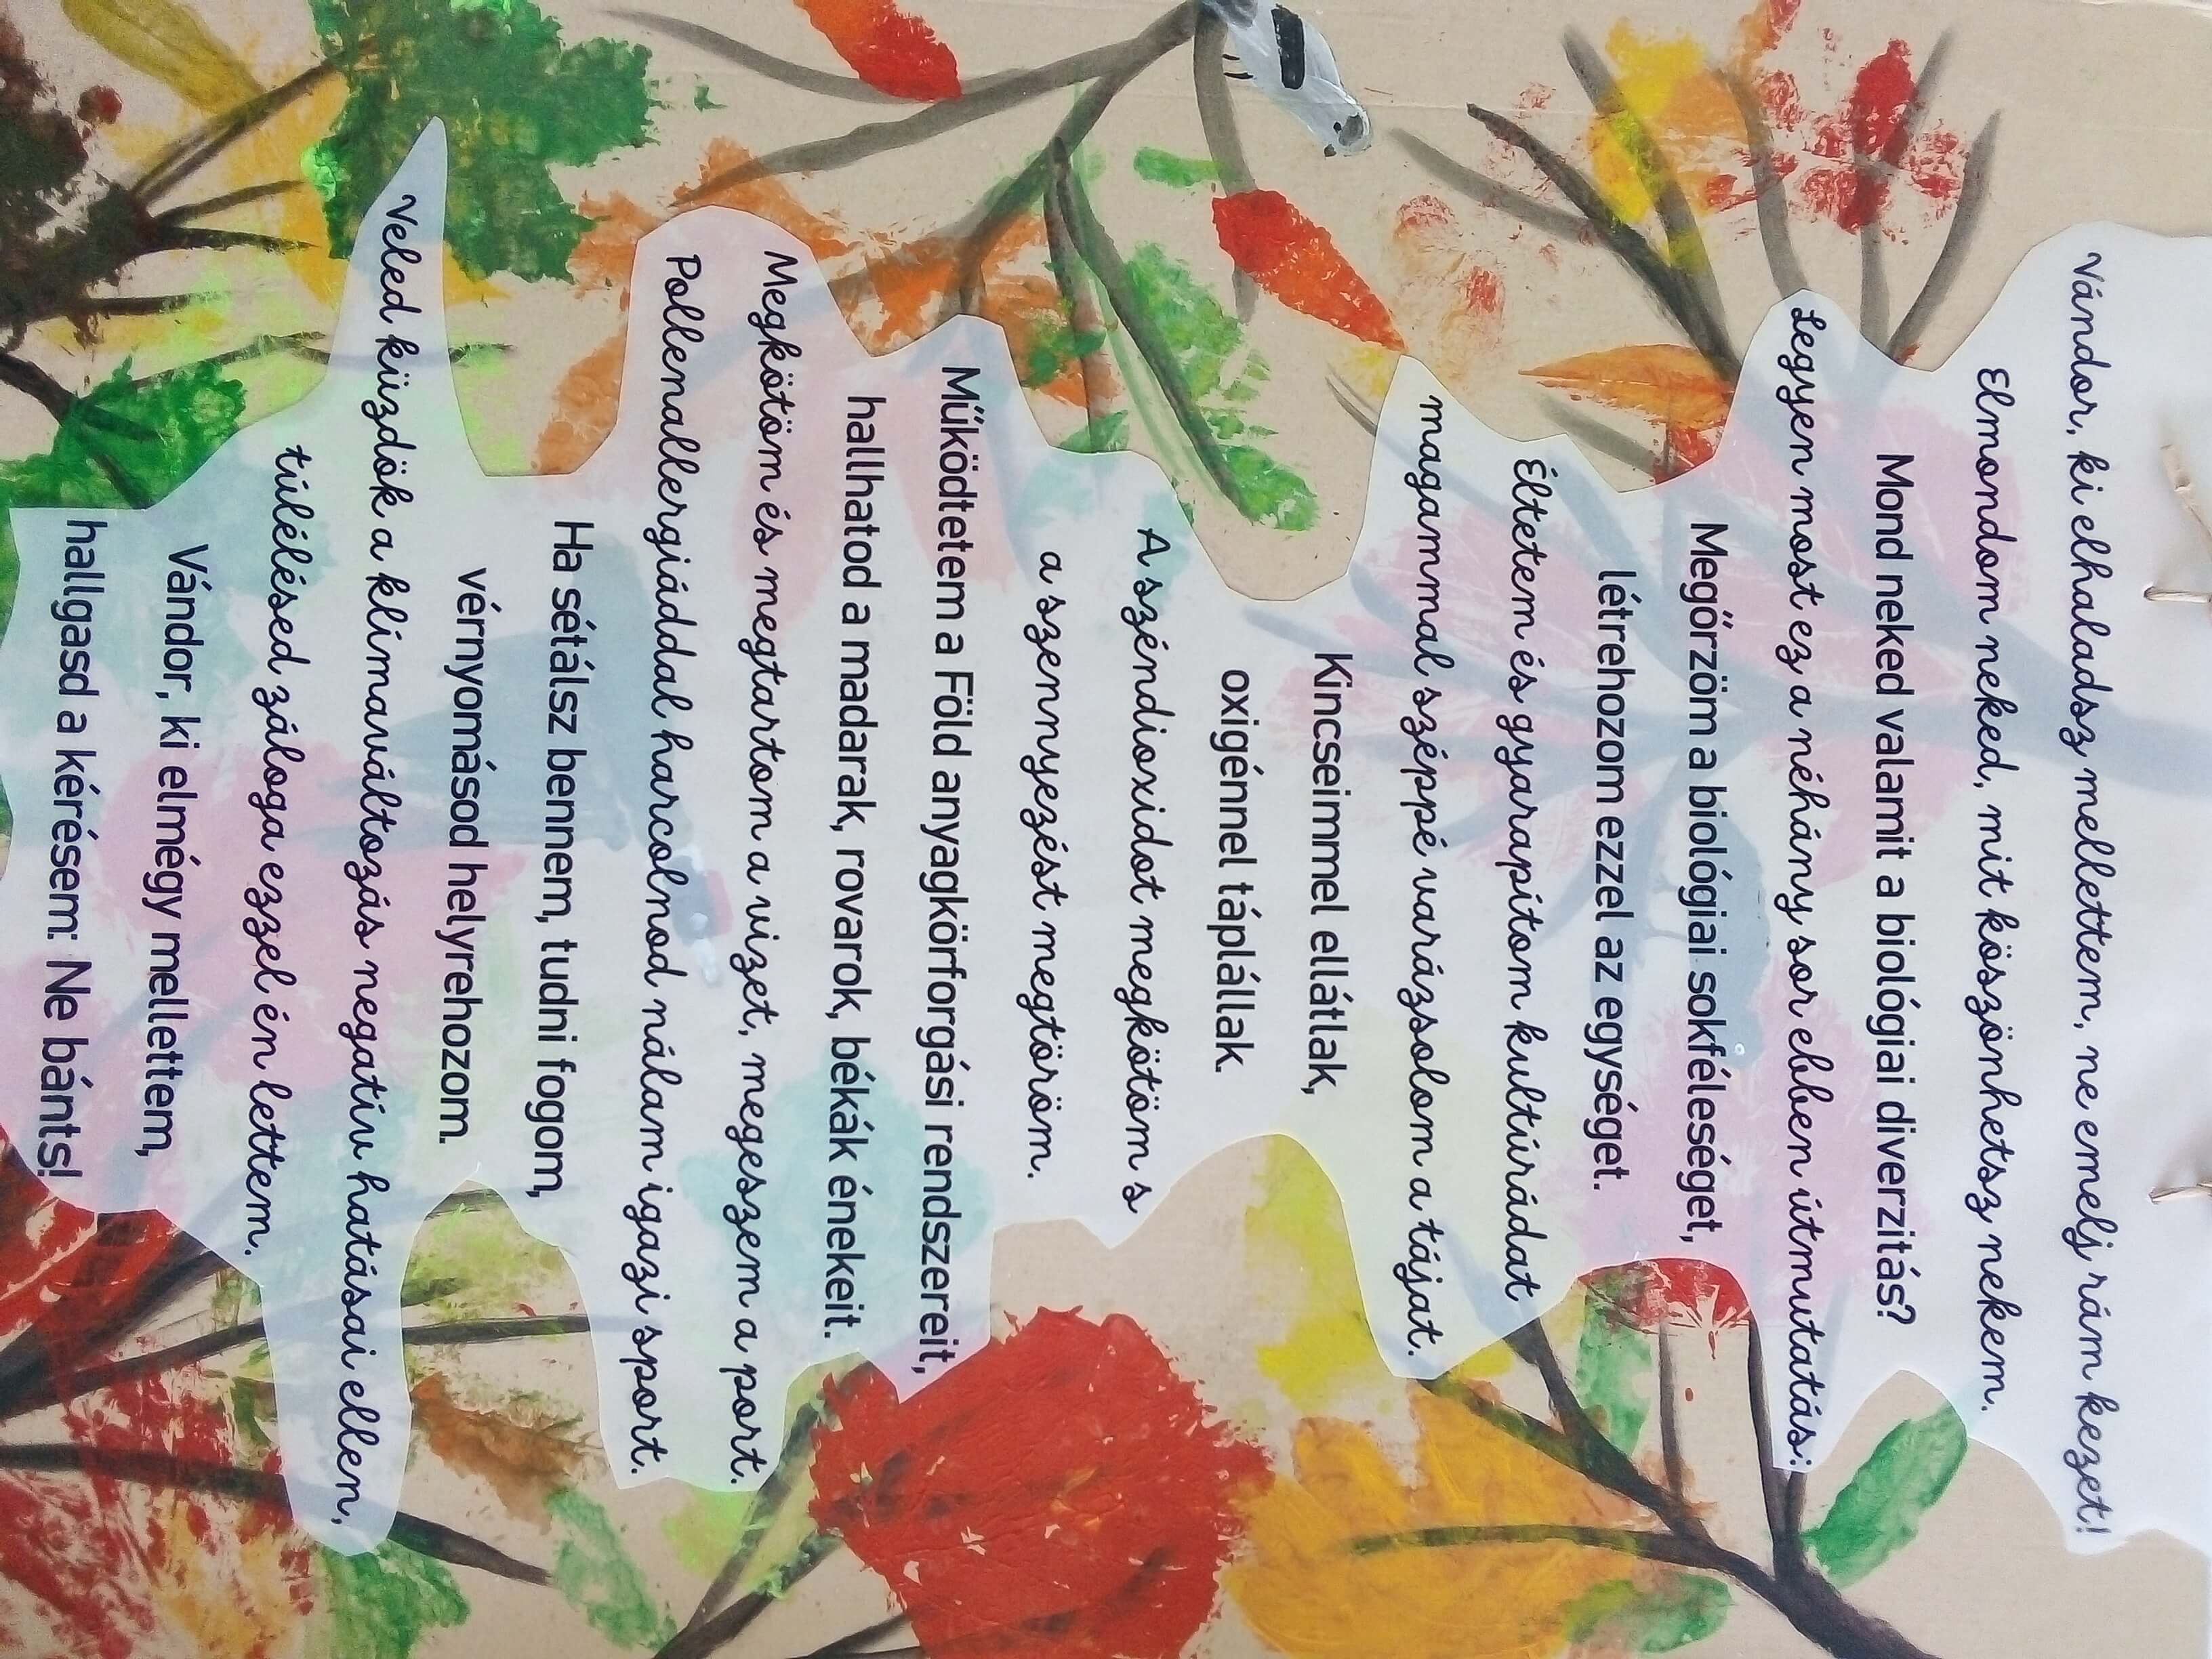 Vándor, ki elhaladsz mellettem, ne emelj rám kezet!
Elmondom neked, mit köszönhetsz nekem.
Mond neked valamit a biológiai diverzitás?
Legyen most ez a néhány sor ebben útmutatás:
Megőrzöm a biológiai sokféleséget,
létrehozom ezzel az egységet.
Éltetem és gyarapítom kultúrádat
magammal széppé varázsolom a tájat.
Kincseimmel ellátlak,
oxigénnel táplállak.
A széndioxidot megkötöm s
a szennyezést megtöröm.
Működtetem a Föld anyagkörforgási rendszereit,
hallhatod a madarak, rovarok, békák énekeit.
Megkötöm és megtartom a vizet, megeszem a port.
Pollenallergiáddal harcolnod nálam igazi sport.
Ha sétálsz bennem, tudni fogom,
vérnyomásod helyrehozom.
Veled küzdök a klímaváltozás negatív hatásai ellen,
túlélésed záloga ezzel én lettem.
Vándor, ki elmégy mellettem,
hallgasd a kérésem: Ne bánts!